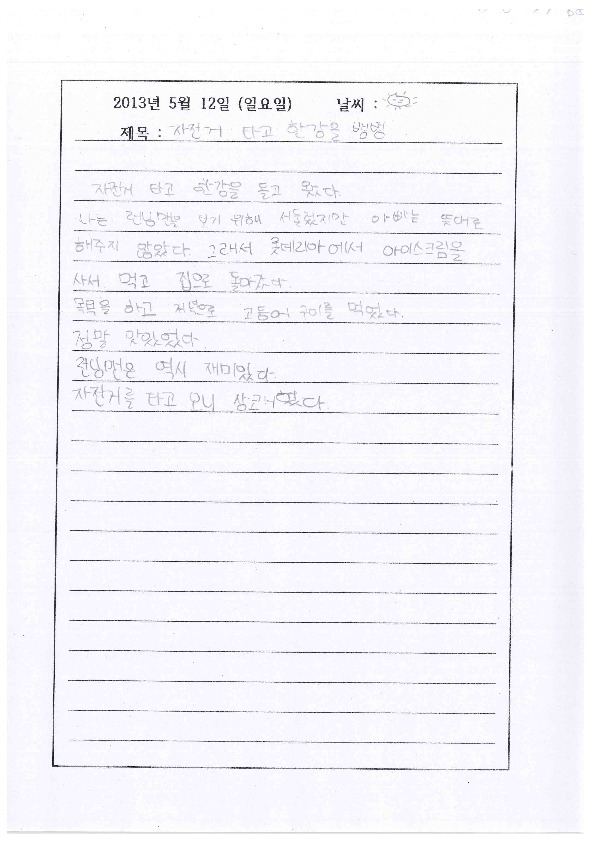 2013년 5월 12일 (일요일) 날씨 :
제목 : 자전거 타고 한강을 빙빙
자전거 타고 한강을 돌고 왔다.
나는 런닝맨을 보기 위해 서둘렀지만 아빠는 뜻대로
해주지 않았다. 그래서 롯데리아에서 아이스크림을
사서 먹고 집으로 돌아갔다.
목욕을 하고 저녁으로 고등어 구이를 먹었다.
정말 맛있었다
런닝맨은 역시 재미있다.
자전거를 타고 오니 했다.